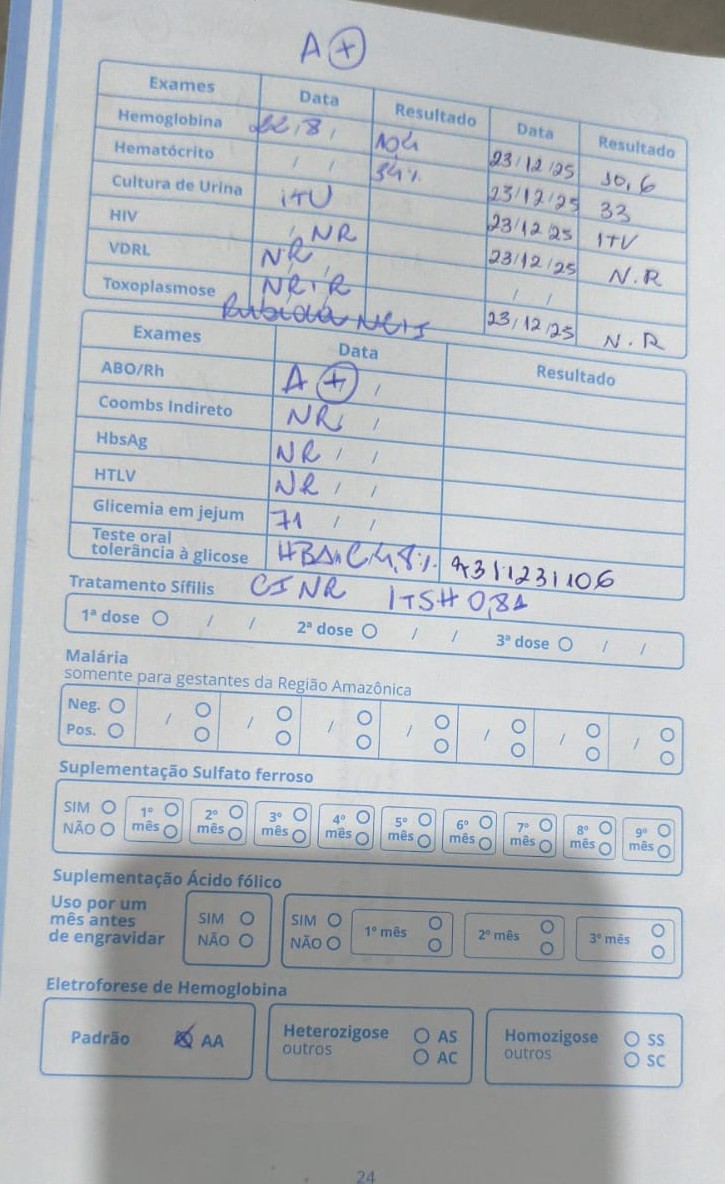 A +
Exames Data Resultado Data Resultado
Hemoglobina 22,8, 10,4 23/12/25 10,6
Hematócrito / / 34% 23/12/25 33
Cultura de Urina ITU 23/12/25 ITU
HIV / NR 23/12/25 N.R
VDRL NR / /
Toxoplasmose NR IR 23/12/25 N.R
Exames Data Resultado
ABO/Rh A + /
Coombs Indireto NR / /
HbsAg NR / /
HTLV NR / /
Glicemia em jejum 71 / /
Teste oral
tolerância à glicose 4,8%
Tratamento Sífilis CI NR TSH 0,81
1ª dose / / 2ª dose / / 3ª dose / /
Malária
somente para gestantes da Região Amazônica
Neg. / / / / / / /
Pos.
Suplementação Sulfato ferroso
SIM 1º 2º 3º 4º 5º 6º 7º 8º 9º
NÃO mês mês mês mês mês mês mês mês mês
Suplementação Ácido fólico
Uso por um
mês antes
de engravidar
SIM
NÃO
SIM
NÃO
1º mês 2º mês 3º mês
Eletroforese de Hemoglobina
Padrão AA
Heterozigose AS
outros AC
Homozigose SS
outros SC
24